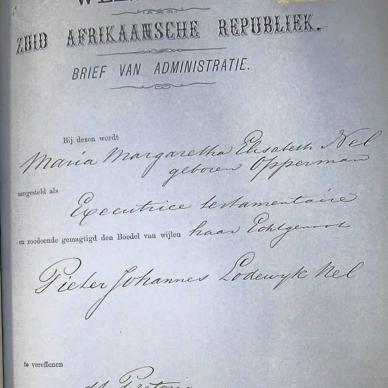 ZUID AFRIKAANSCHE REPUBLIEK.
BRIEF VAN ADMINISTRATIE.
Bij dezen wordt
Maria Margaretha Elisabeth Nel
geboren Opperman
aangesteld als
Executrice testamentaire
en zoodoende gemagtigd den Boedel van wijlen haar Echtgenoot
Pieter Johannes Lodewyk Nel
te vereffenen
Pretoria